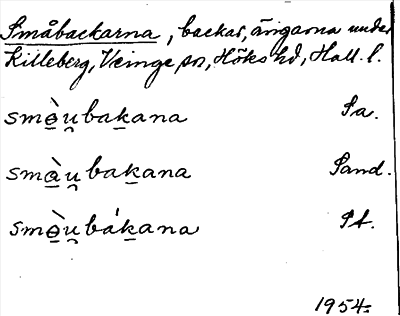 Småbackarna, backar, ängarna under
Killeberg, Veinge sn, Höks hd, Hall. l.
smə̀u̯bakana Sa.
smàu̯bakana Sand.
smə̀u̯bákana St.
1954.